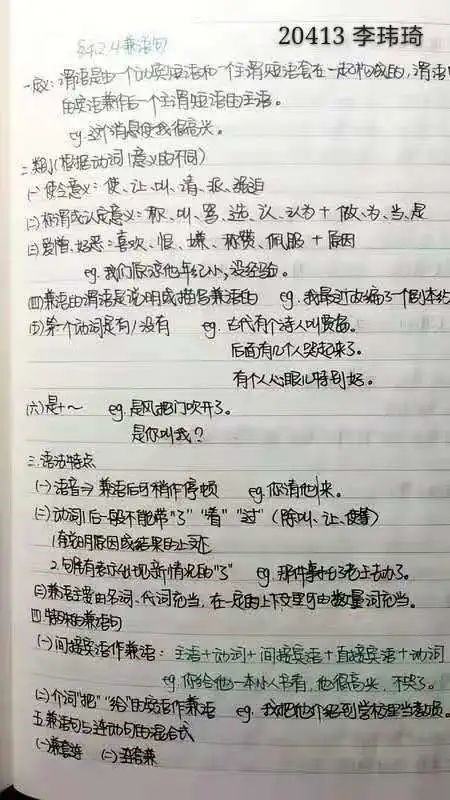 20413 李玮琦
§4.2.4 兼语句
一.定义：谓语是由一个动宾短语和一个主谓短语套在一起构成的，谓语中
的宾语兼作后一个主谓短语的主语。
eg.这个消息使我很高兴。
二.类别（根据动词1意义的不同）
(一)使令意义：使、让、叫、请、派、强迫
(二)称谓或认定意义：称、叫、骂、选、认、认为＋做、为、当、是
(三)爱憎、好恶：喜欢、恨、嫌、称赞、佩服＋原因
eg.我们原谅他年纪小，没经验。
(四)兼语的谓语是说明或描写兼语的 eg.我最近改编了一个剧本
(五)第一个动词是有/没有 eg.古代有个诗人叫贾岛。
后面有几个人哭起来了。
有个人心眼儿特别好。
(六)是＋～ eg.是风把门吹开了。
是你叫我？
三.语法特点
(一)语音→兼语后可稍作停顿 eg.你请他来。
(二)动词1后一般不能带“了”“着”“过”（陈叫、让、使等）
1.有说明原因或结果的上文
2.句尾有表示出现新情况的“了” eg.那件事
(三)兼语主要由名词、代词充当，在一定的上下文里可由数量词充当。
四.特殊的兼语句
(一)间接宾语作兼语：主语＋动词＋间接宾语＋直接宾语＋动词
eg.你给他一本小人书看，他很高兴，不哭了。
(二)介词“把”“给”的宾语作兼语 eg.我把他介绍到学校里当教员。
五.兼语句与连动句的混合式
(一)兼套连 (二)连套兼